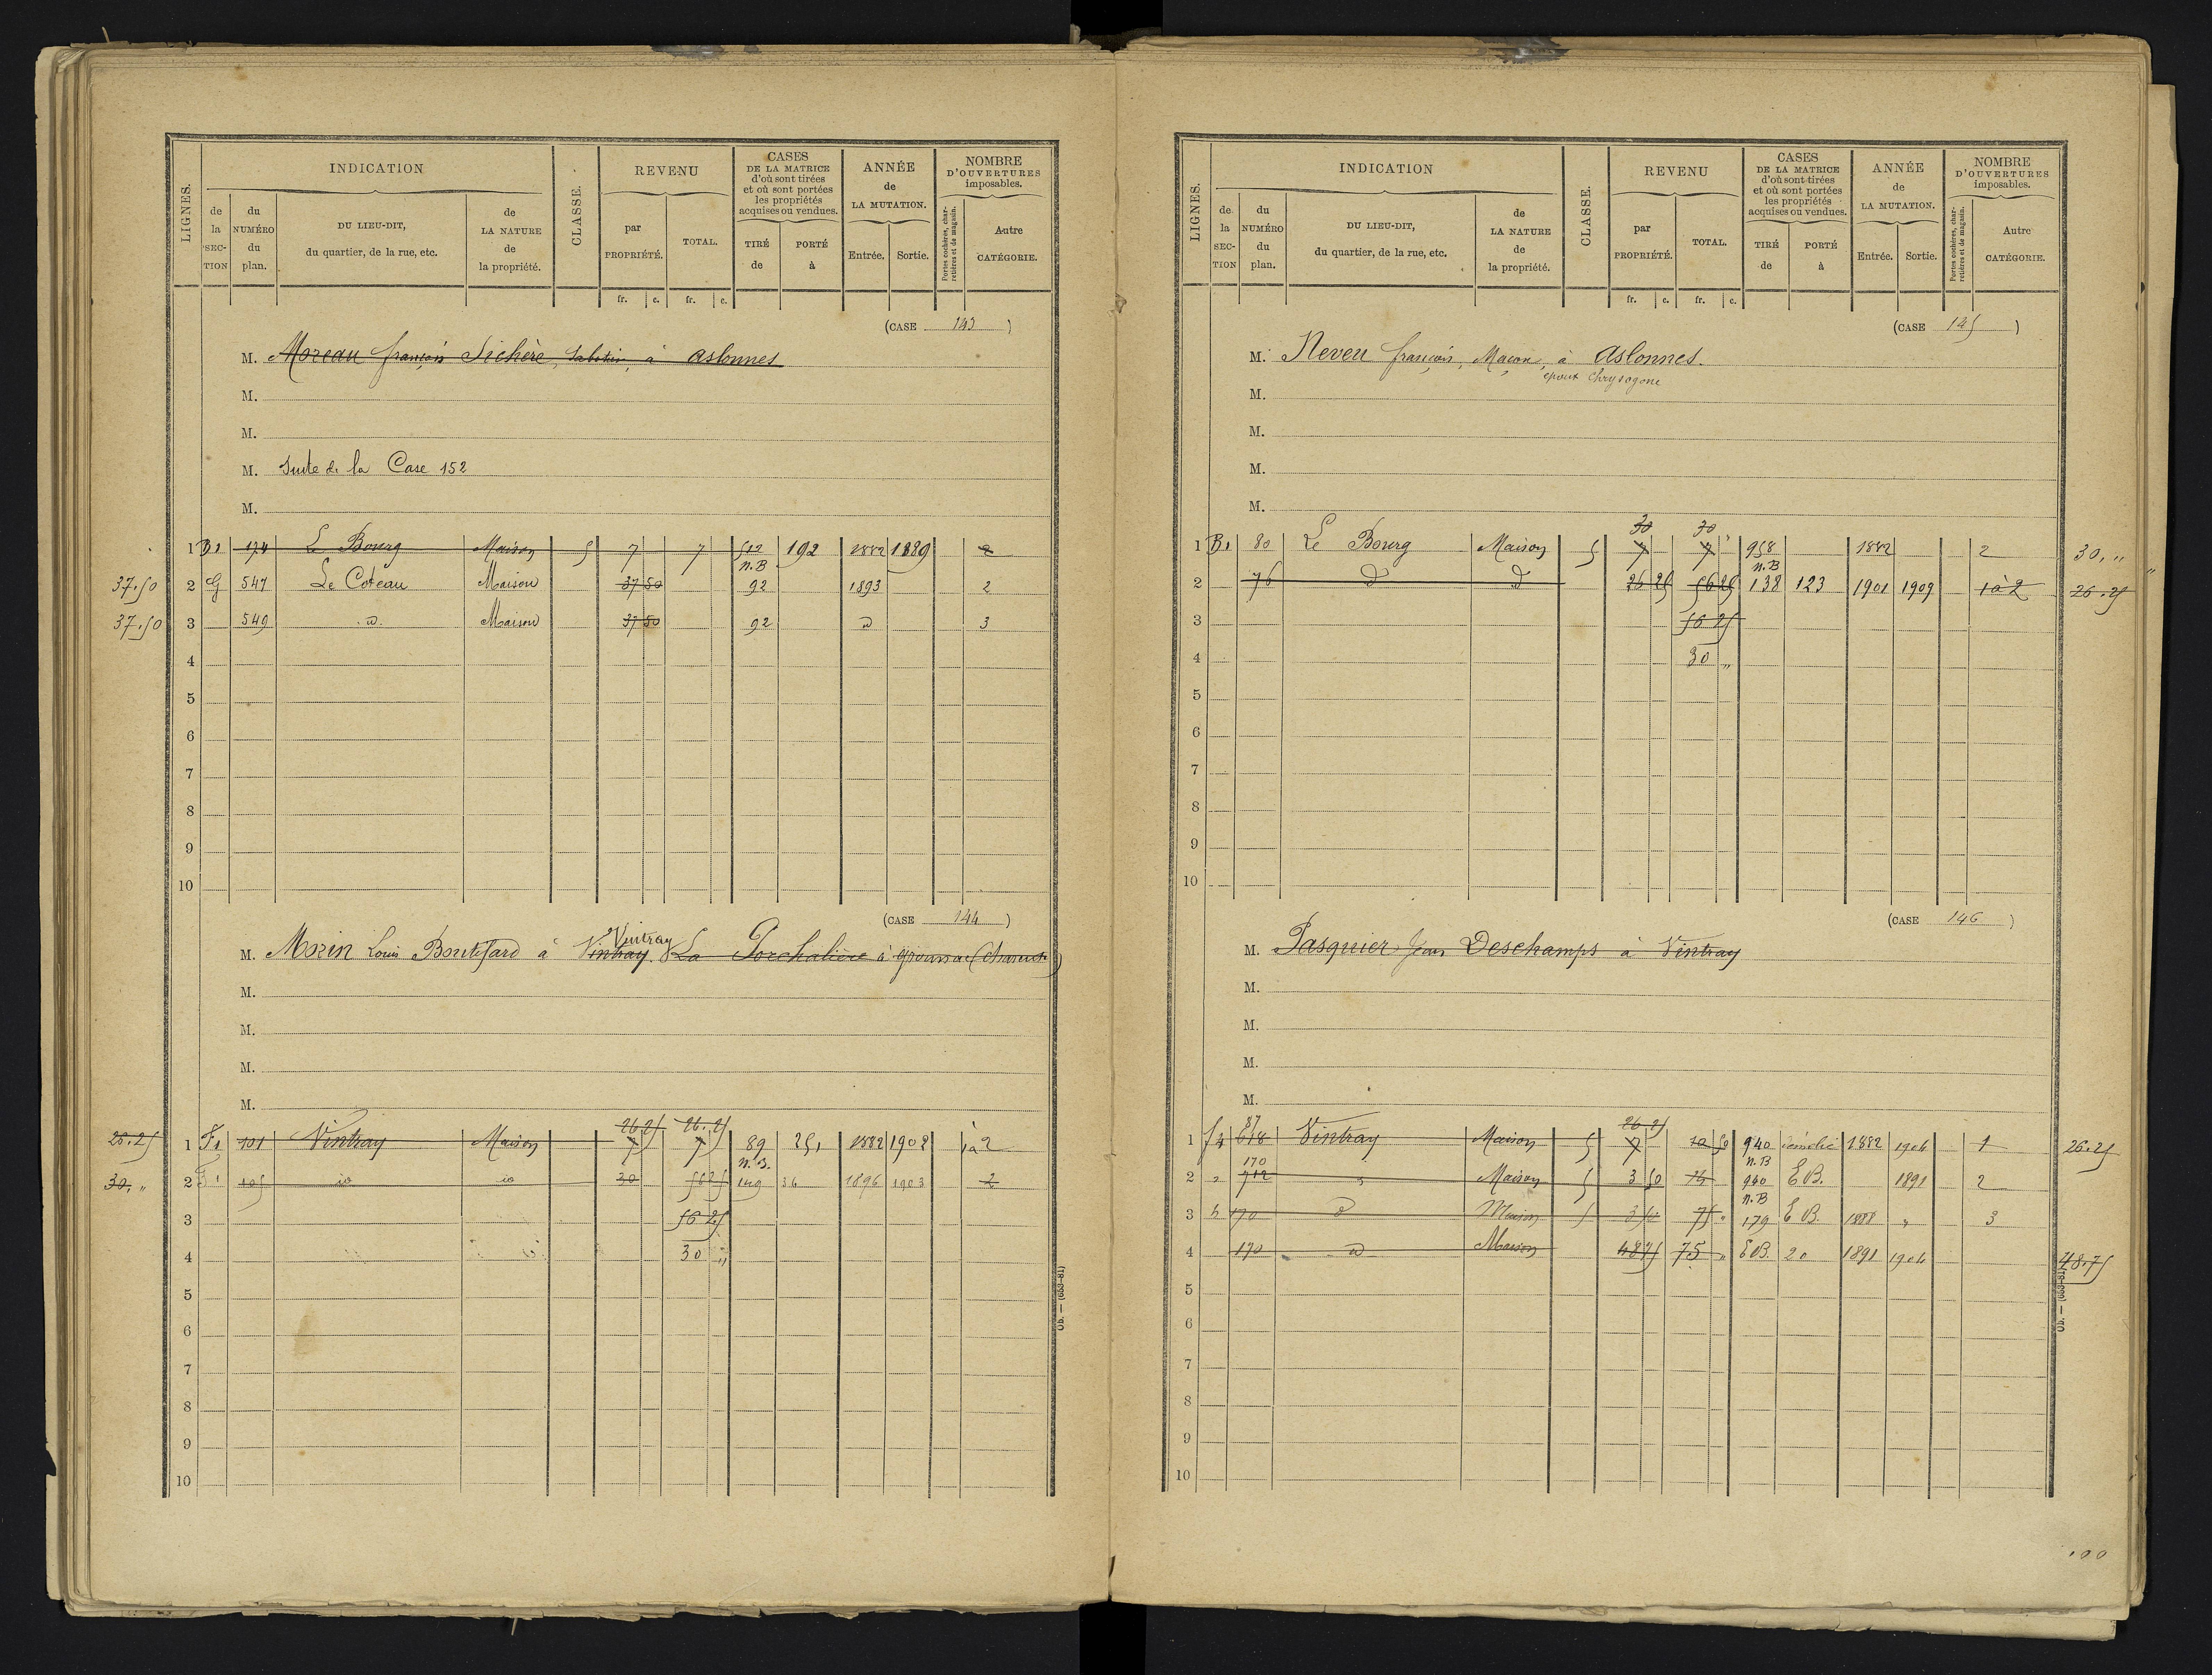 LIGNES.
INDICATION
de la SECTION
du NUMÉRO du plan.
DU LIEU-DIT, du quartier, de la rue, etc.
de LA NATURE de la propriété.
CLASSE.
REVENU
par PROPRIÉTÉ.
TOTAL.
fr. c. fr. c.
CASES DE LA MATRICE d'où sont tirées et où sont portées les propriétés acquises ou vendues.
TIRÉ de
PORTÉ à
ANNÉE de LA MUTATION.
Entrée. Sortie.
NOMBRE D'OUVERTURES imposables.
Portes cochères, charretières et de magasin.
Autre CATÉGORIE.
(CASE 143)
M. Moreau françois Sichère, Sabotier, à Aslonnes
M.
M.
M. Suite de la Case 152
M.
1 B1 174 Le Bourg Maison 5 7 7 512 192 1882 1889 2
n.B
37.50 2 G 547 Le Coteau Maison 37 50 92 1893 2
37.50 3 549 d Maison 37 50 92 d 3
4
5
6
7
8
9
10
(CASE 144)
Vintray
M. Morin Louis Boutifard à Vintray La Porchalière à (Charente)
M.
M.
M.
M.
26 25 26.25
26.25 1 F1 101 Vintray Maison 7 7 89 251 1882 1908 1à2
n.B.
30. " 2 F1 105 id id 30 56 25 149 36 1896 1903 2
3 56 25
4 30 "
5
6
7
8
9
10
Ob. — (653-81)
LIGNES.
INDICATION
de la SECTION
du NUMÉRO du plan.
DU LIEU-DIT, du quartier, de la rue, etc.
de LA NATURE de la propriété.
CLASSE.
REVENU
par PROPRIÉTÉ.
TOTAL.
fr. c. fr. c.
CASES DE LA MATRICE d'où sont tirées et où sont portées les propriétés acquises ou vendues.
TIRÉ de
PORTÉ à
ANNÉE de LA MUTATION.
Entrée. Sortie.
NOMBRE D'OUVERTURES imposables.
Portes cochères, charretières et de magasin.
Autre CATÉGORIE.
(CASE 145)
M. Neveu françois, Maçon, à Aslonnes.
époux Chrysogone
M.
M.
M.
M.
30 30
1 B1 80 Le Bourg Maison 5 7 7 958 1882 2 30, "
n.B
2 76 d d 26 25 56 25 138 123 1901 1909 1à2 26.25
3 56 25
4 30 "
5
6
7
8
9
10
(CASE 146)
M. Pasquier Jean Deschamps à Vintray
M.
M.
M.
M.
87 26 25
1 f4 618 Vintray Maison 5 7 10 50 940 démolie 1882 1904 1 26.25
170 n.B
2 " 712 " Maison 5 3 50 75 940 E B. 1891 2
n.B
3 h 170 d Maison 5 3 50 75 " 179 E B. 1888 " 3
4 170 d Maison 48 75 75 " E B. 20 1891 1904 48.75
5
6
7
8
9
10
Ob. — (653-81)